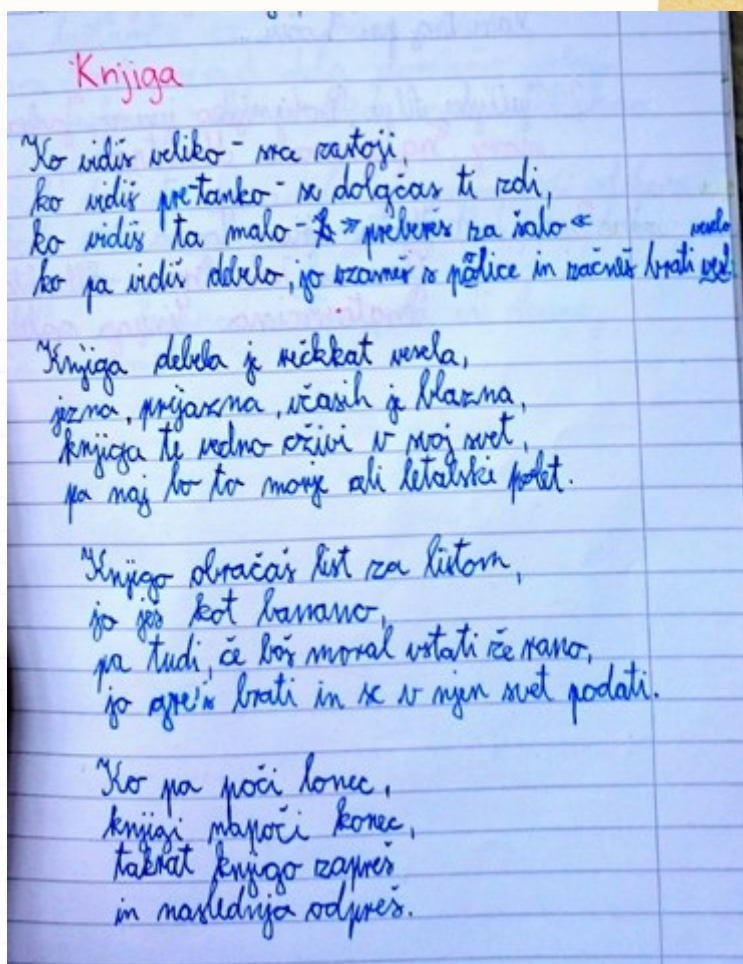 Knjiga
Ko vidiš veliko - srce zastoji,
ko vidiš pretanko - se dolgčas ti zdi,
ko vidiš ta malo - »prebereš za šalo«
ko pa vidiš debelo, jo vzameš s police in začneš brati veselo
Knjiga debela je večkkat vesela,
jezna, prijazna, včasih je blazna,
knjiga te vedno oživi v svoj svet,
pa naj bo to morje ali letalski polet.
Knjigo obračaš list za listom,
jo ješ kot banano,
pa tudi, če boš moral vstati že rano,
jo greš brati in se v njen svet podati.
Ko pa poči lonec,
knjigi napoči konec,
takrat knjigo zapreš
in naslednja odpreš.